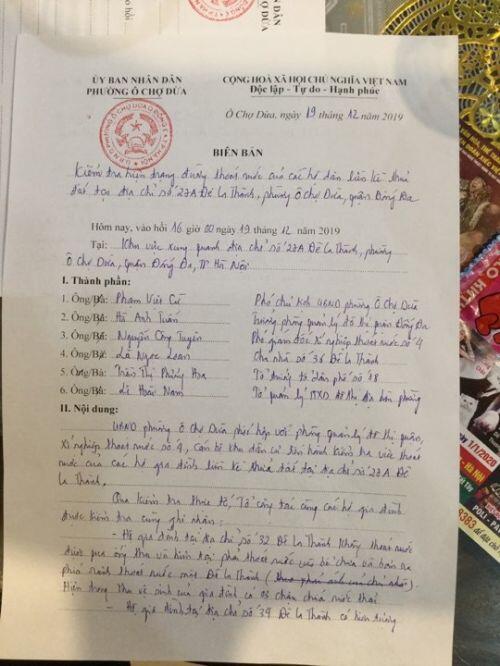 ỦY BAN NHÂN DÂN
PHƯỜNG Ô CHỢ DỪA
CỘNG HOÀ XÃ HỘI CHỦ NGHĨA VIỆT NAM
Độc lập - Tự do - Hạnh phúc
Ô Chợ Dừa, ngày 19 tháng 12 năm 2019
BIÊN BẢN
Kiểm tra hiện trạng đường thoát nước của các hộ dân liền kề thửa
đất tại địa chỉ số 27A Đê La Thành, phường Ô Chợ Dừa, quận Đống Đa
Hôm nay, vào hồi 16 giờ 00 ngày 19 tháng 12 năm 2019
Tại: Khu vực xung quanh địa chỉ số 27A Đê La Thành, phường
Ô Chợ Dừa, quận Đống Đa, TP Hà Nội.
I. Thành phần:
1. Ông/Bà: Phạm Việt Phó chủ tịch UBND phường Ô Chợ Dừa
2. Ông/Bà: Hà Anh Tuấn Trưởng phòng quản lý đô thị quận Đống Đa
3. Ông/Bà: Nguyễn Công Tuyên Phó giám đốc Xí nghiệp thoát nước số 4
4. Ông/Bà: Lê Ngọc Loan Chủ nhà số 36 Đê La Thành
5. Ông/Bà: Trần Thị Phương Hoa Tổ trưởng tổ dân phố số 18
6. Ông/Bà: Lê Hoài Nam Tổ quản lý TTXD đô thị địa bàn phường
II. Nội dung:
UBND phường Ô Chợ Dừa phối hợp với phòng quản lý đô thị quận,
Xí nghiệp thoát nước số 4, cán bộ khu dân cư tiến hành kiểm tra việc thoát
nước của các hộ gia đình liền kề thửa đất tại địa chỉ số 27A Đê
La Thành.
Qua kiểm tra thực tế, Tổ công tác cùng các hộ gia đình
được kiểm tra cùng ghi nhận:
- Hộ gia đình tại địa chỉ số 32 Đê La Thành thoát nước
được qua ống thu và hiện tại phải thoát nước ra
phía rãnh thoát nước mặt Đê La Thành (theo phản ánh của chủ nhà)
Hiện trong nhà vệ sinh của gia đình có chứa nước thải
- Hộ gia đình tại địa chỉ số 34 Đê La Thành có hiện tượng